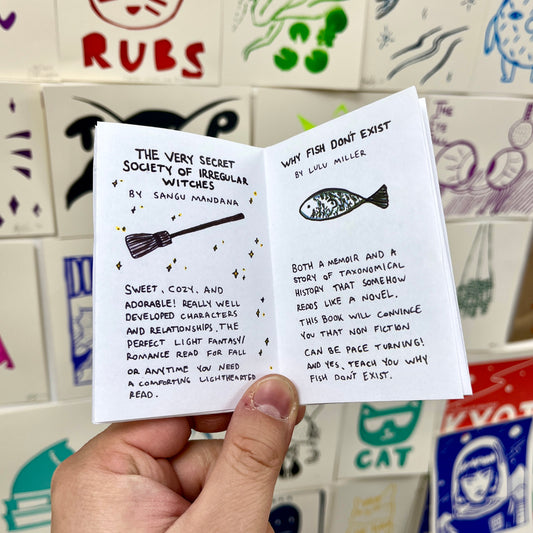 RUBS
THE VERY SECRET
SOCIETY OF IRREGULAR
WITCHES
BY SANGU MANDANA
SWEET, COZY, AND
ADORABLE! REALLY WELL
DEVELOPED CHARACTERS
AND RELATIONSHIPS. THE
PERFECT LIGHT FANTASY/
ROMANCE READ FOR FALL
OR ANYTIME YOU NEED
A COMFORTING LIGHTHEARTED
READ.
WHY FISH DON'T EXIST
BY LULU MILLER
BOTH A MEMOIR AND A
STORY OF TAXONOMICAL
HISTORY THAT SOMEHOW
READS LIKE A NOVEL.
THIS BOOK WILL CONVINCE
YOU THAT NON FICTION
CAN BE PAGE TURNING!
AND YES, TEACH YOU WHY
FISH DON'T EXIST.
CAT